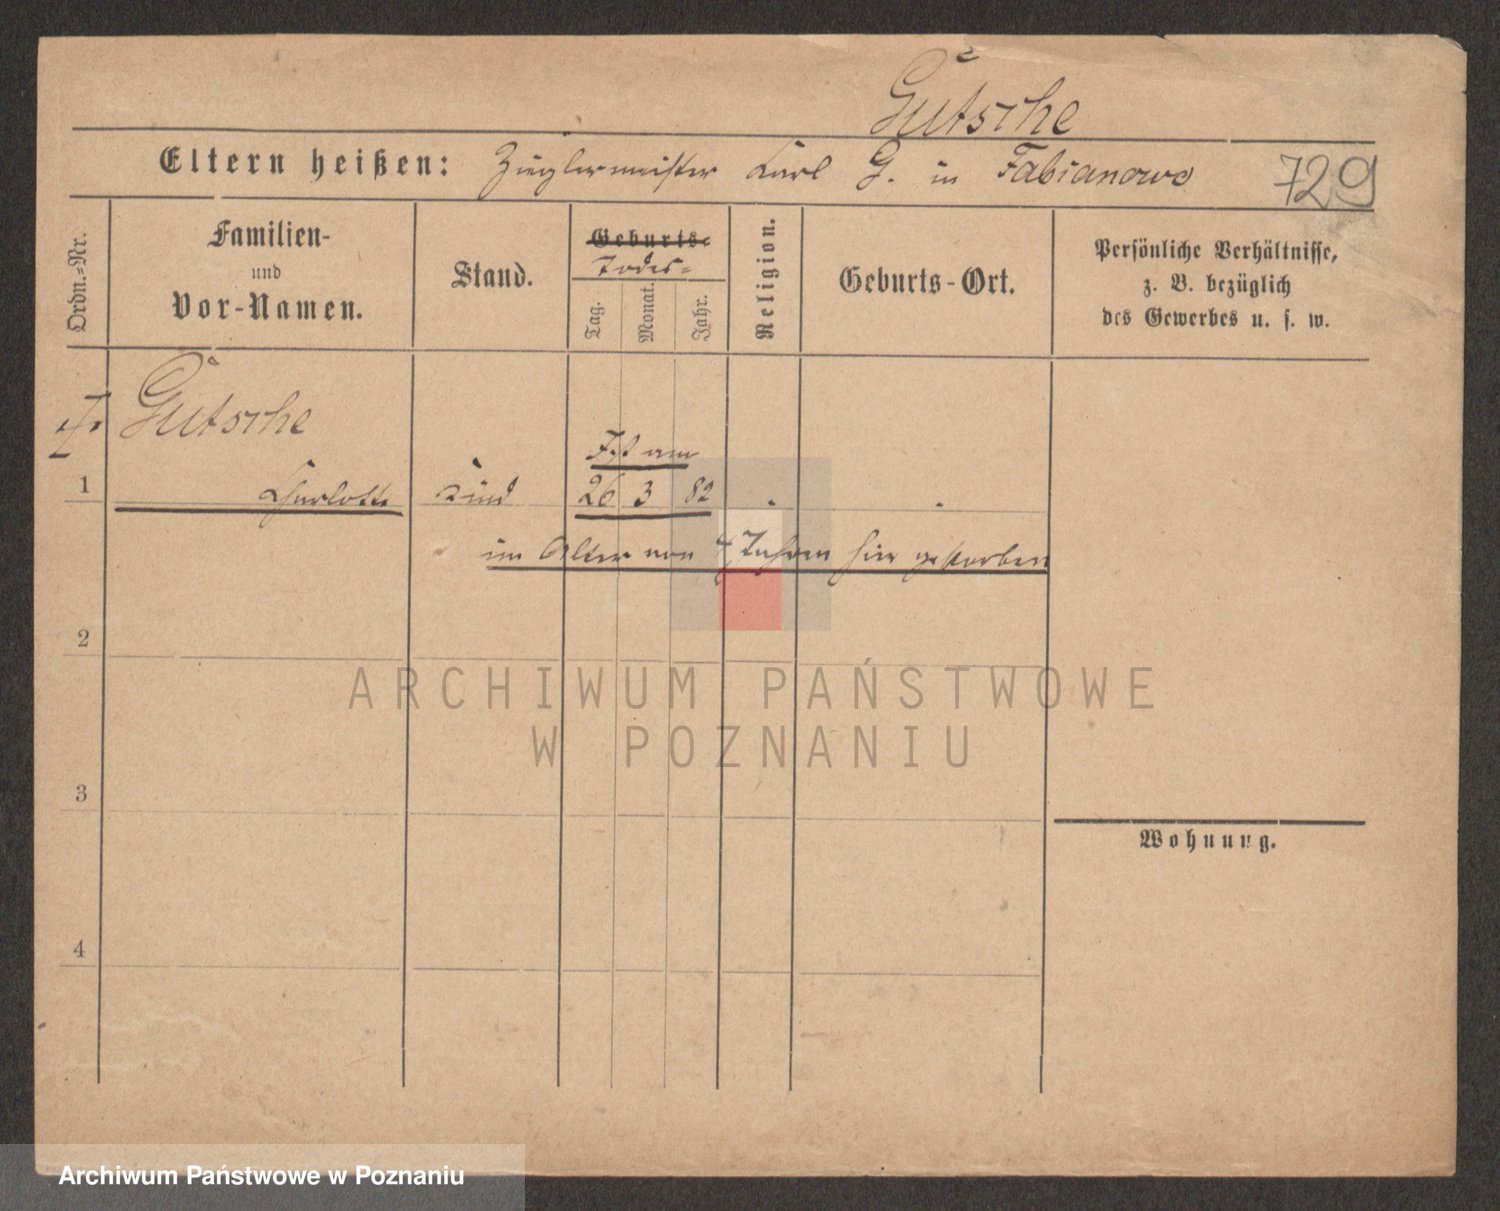 Gutsche
Eltern heißen: Zieglermeister Karl G. in Fabianowo 729
Ordn.-Nr.
Familien-
und
Vor-Namen.
Stand.
Geburts-
Todes-
Tag.
Monat.
Jahr.
Religion.
Geburts-Ort.
Persönliche Verhältnisse,
z. B. bezüglich
des Gewerbes u. s. w.
Gutsche
Ist am
1 Charlotte Kind 26 3 82
im Alter von 4 Jahren hier gestorben
2
3
4
Wohnung.
ARCHIWUM PAŃSTWOWE
W POZNANIU
Archiwum Państwowe w Poznaniu